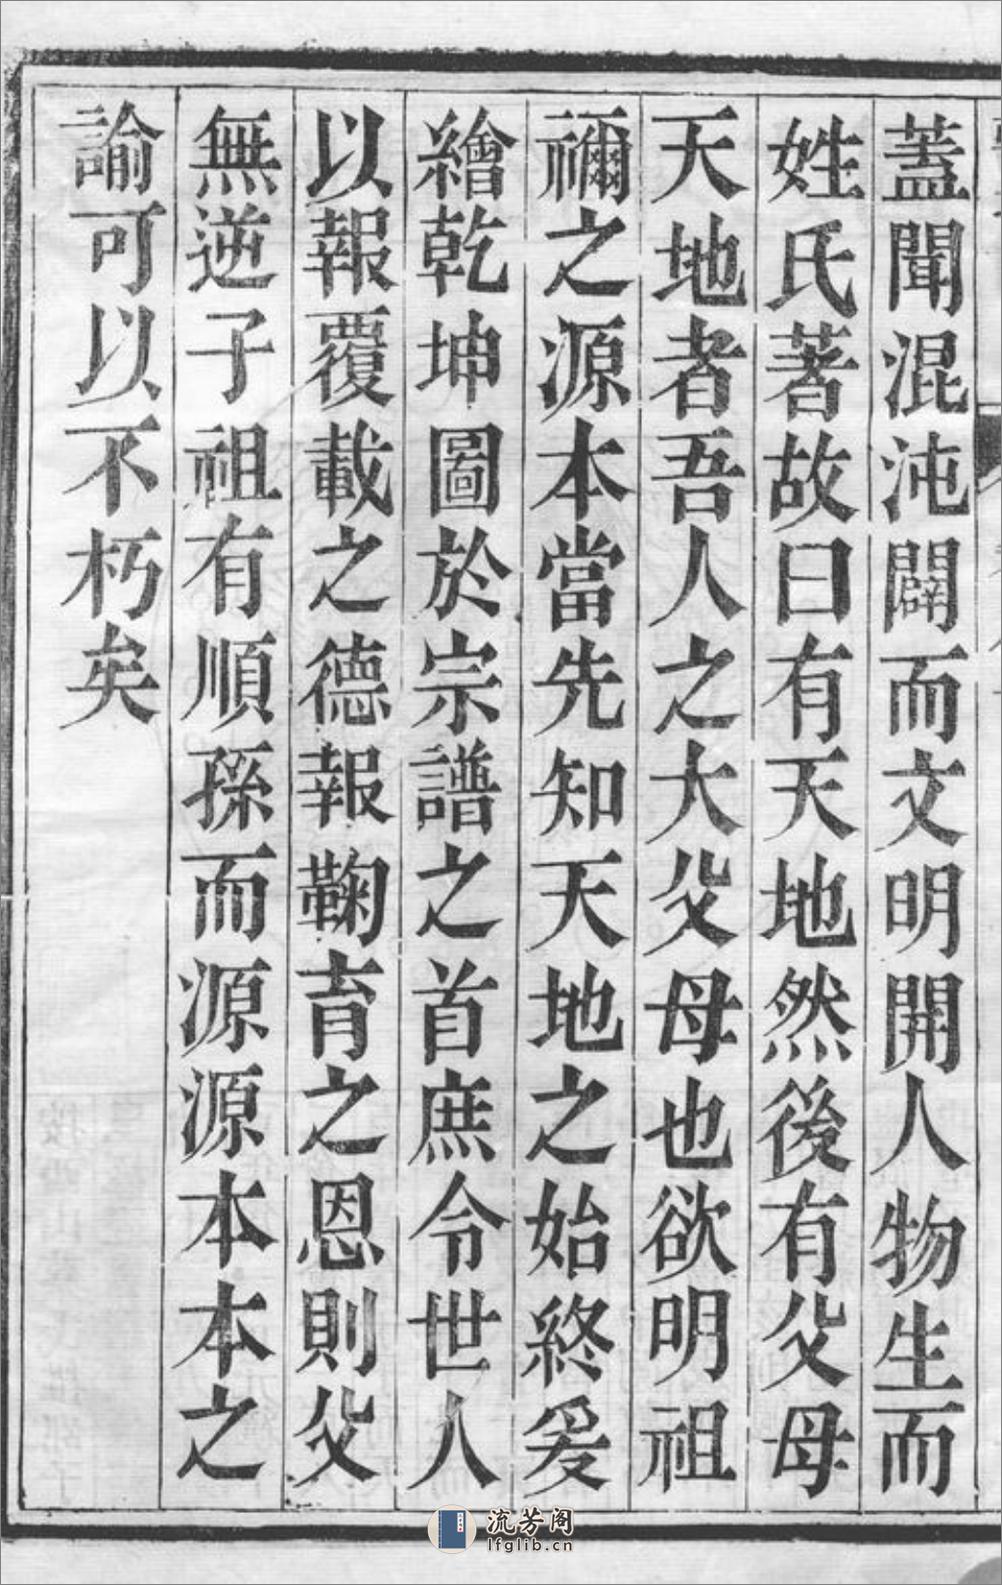 蓋聞混沌闢而文明開人物生而
姓氏著故曰有天地然後有父母
天地者吾人之大父母也欲明祖
禰之源本當先知天地之始終爰
繪乾坤圖於宗譜之首庶令世人
以報覆載之德報鞠育之恩則父
無逆子祖有順孫而源源本本之
諭可以不朽矣
流芳阁
lfglib.cn